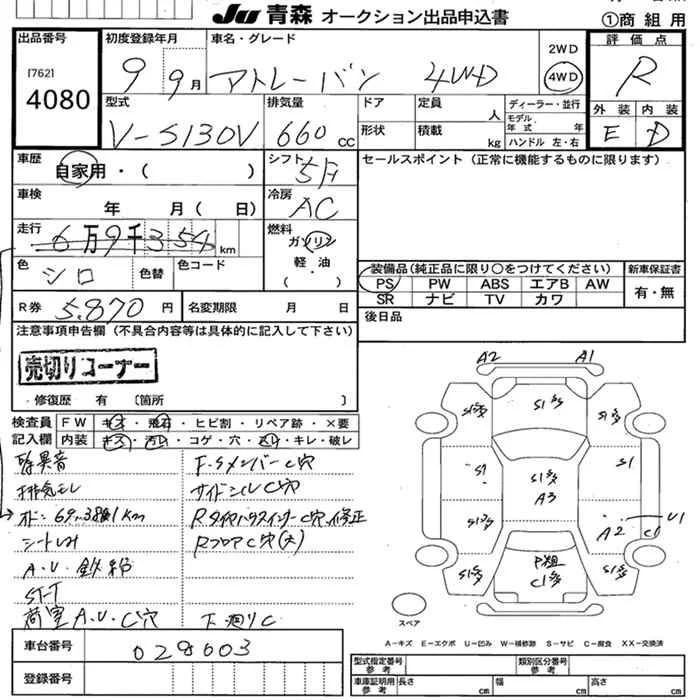 JU 青森 オークション出品申込書
①商組用
出品番号
[762]
4080
初度登録年月
9 9月
車名・グレード
アトレーバン 4WD
2WD
4WD
評価点
R
外装 内装
E D
型式
V-S130V
排気量
660 cc
ドア
形状
定員 人
積載 kg
ディーラー・並行
モデル年式 年
ハンドル 左・右
車歴
自家用・( )
シフト
5F
セールスポイント(正常に機能するものに限ります)
車検
年 月( 日)
冷房
AC
走行
6万9千354km
燃料
ガソリン
軽・油
・( )
色
シロ
色替
色コード
装備品(純正品に限り○をつけてください)
PS PW ABS エアB AW
SR ナビ TV カワ
新車保証書
有・無
R券 5.870円
名変期限 月 日
後日品
注意事項申告欄(不具合内容等は具体的に記入して下さい)
売切りコーナー
・修復歴 有 〔箇所 〕
検査員記入欄
FW キズ・飛石・ヒビ割・リペア跡・×要
内装 キズ・汚レ・コゲ・穴・スレ・キレ・破レ
異音
排気モレ
シートしみ
A.V.
ST-T
荷室A.V.C穴
F.SメンバーC穴
サイドシルC穴
RタイヤハウスインナーC穴、修正
RフロアC穴(大)
下廻りC
A2 A1
S1
A3
A2
U1
C1
スペア
A-キズ E-エクボ U-凹み W-補修跡 S-サビ C-腐食 XX-交換済
車台番号
028603
登録番号
型式指定番号 参考
類別区分番号 参考
車庫証明用 参考
長さ cm
幅 cm
高さ cm